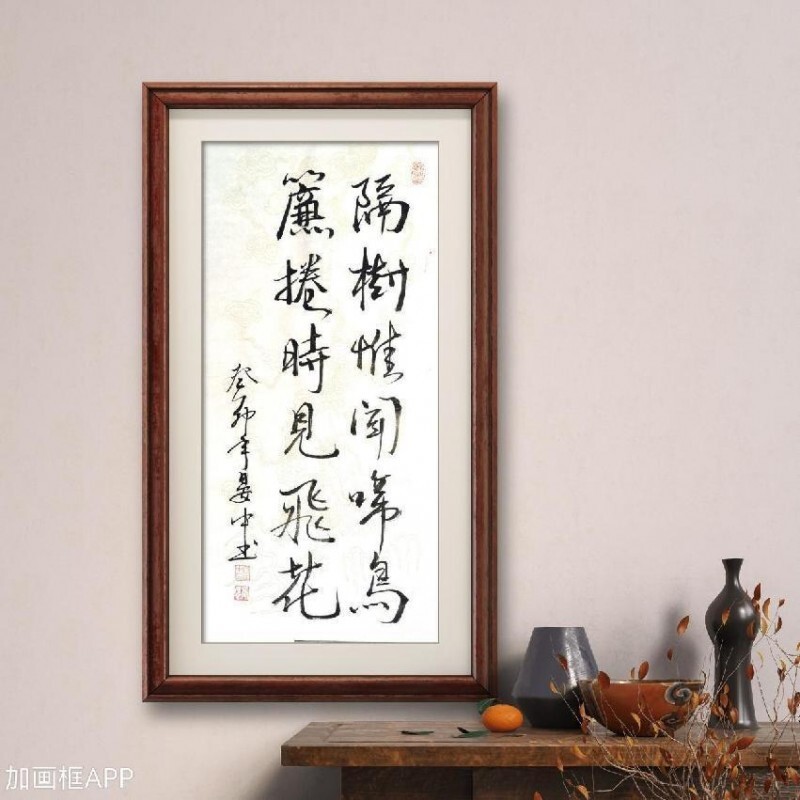 隔樹惟聞啼鳥
簾捲時見飛花
癸卯年晏中书
加画框APP